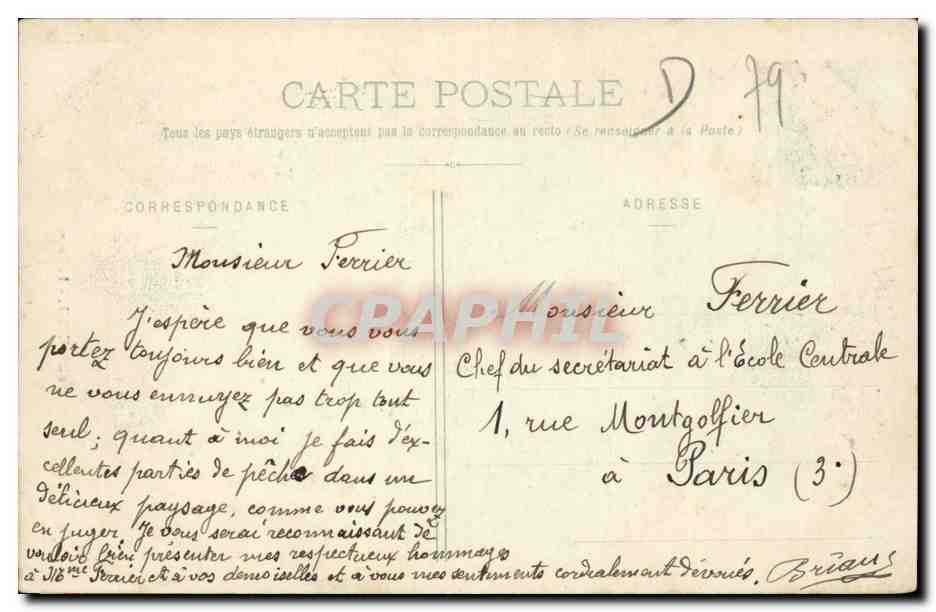 CARTE POSTALE
D 79
Tous les pays étrangers n'acceptent pas la correspondance au recto (Se renseigner à la Poste)
CORRESPONDANCE
Monsieur Ferrier
J'espère que vous vous
portez toujours bien et que vous
ne vous ennuyez pas trop tout
seul; quant à moi je fais d'ex-
cellentes parties de pêche dans un
délicieux paysage, comme vous pouvez
en juger. Je vous serai reconnaissant de
vouloir bien présenter mes respectueux hommages
à Mme Ferrier et à vos demoiselles et à vous mes sentiments cordialement dévoués.
ADRESSE
Monsieur Ferrier
Chef du secrétariat à l'École Centrale
1, rue Montgolfier
à Paris (3e)
CPAPHIL